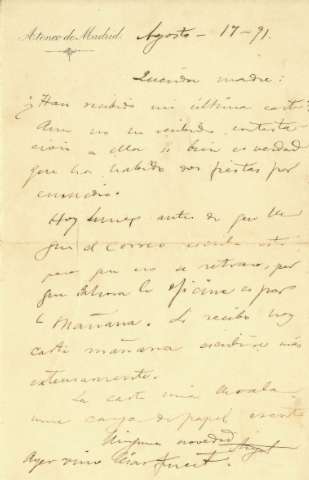 Ateneo de Madrid. Agosto - 17 - 91.
Querida madre:
¿Han recibido mi última carta?
Aun no he recibido contesta
ción a ella si bien es verdad
que ha habido dos fiestas por
enmedio.
Hoy lunes antes de que
el correo escribo esta
para que no se retrase, por
que ahora la oficina es por
la mañana. Si recibo hoy
carta mañana escribiré más
extensamente.
La carta una
una caja de papel
Ninguna novedad
Ayer vino César